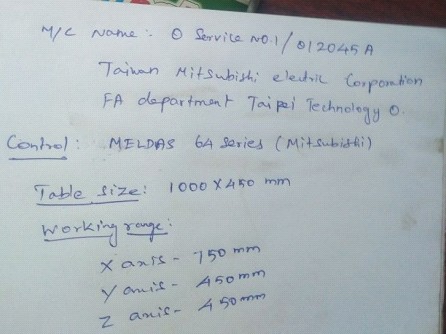 M/C Name:- O Service NO.1/012045A
Taiwan Mitsubishi electric Corporation
FA department Taipei Technology O.
Control: MELDAS 64 Series (Mitsubishi)
Table size: 1000 X 450 mm
Working range:
X axis - 750 mm
Y axis - 450 mm
Z axis - 450 mm